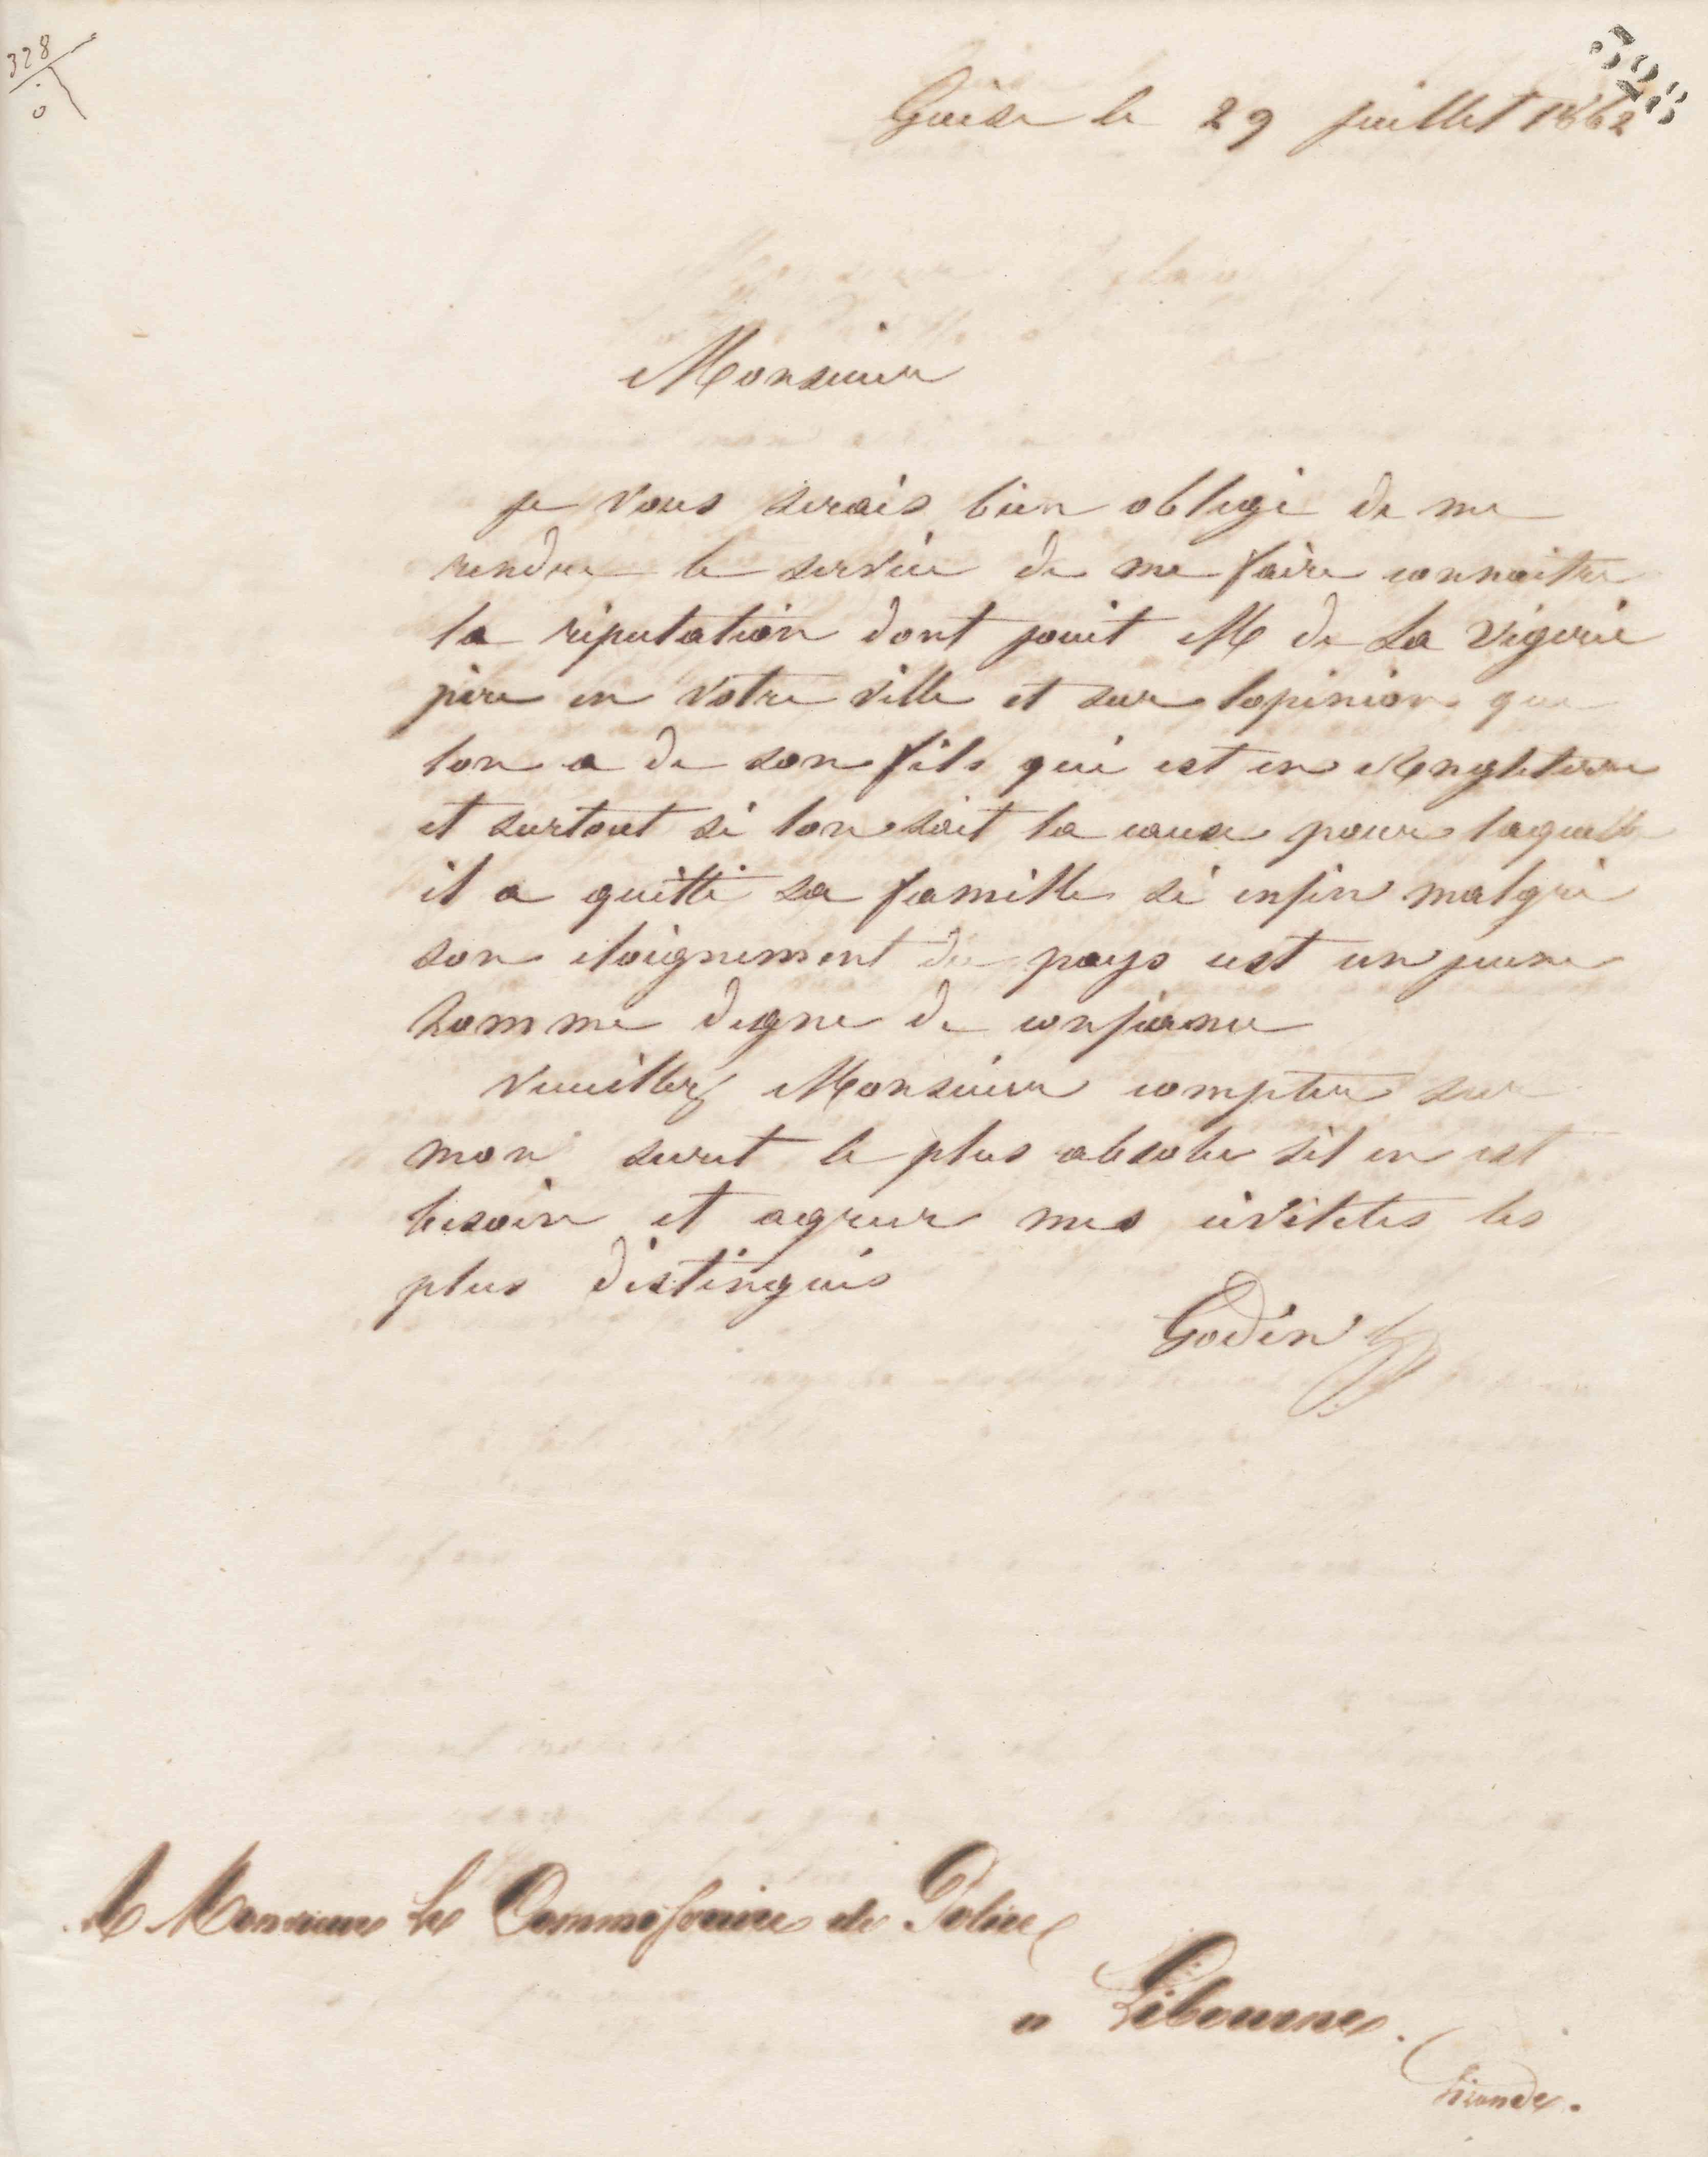 328
328
Guise le 29 juillet 1862
Monsieur
je vous serais bien obligé de me
rendre le service de me faire connaitre
la réputation dont jouit M de La Vigerie
père en votre ville et sur lopinion que
lon a de son fils qui est en Angleterre
et surtout si lon sait la cause pour laquelle
il a quitté sa famille si enfin malgré
son eloignement du pays est un jeune
homme digne de confiance
Veuillez Monsieur compter sur
mon secret le plus absolu sil en est
besoin et agreer mes civilités les
plus distingués
Godin
A Monsieur Le Commissaire de Police
a Libourne.
Gironde.